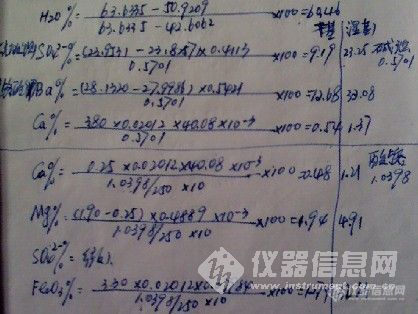 H₂O% = (63.6335 - 50.9209)/(63.6335 - 42.6062) ×100 = 60.46
干基 湿基
SO₄²⁻% = ×0.4113/0.5701 ×100 = 9.19 23.25
Ba% = /0.5701 ×100 = 33.08
Ca% = 3.80×0.02012×40.08×10⁻³/0.5701 ×100 = 0.54 1.37
Ca% = 0.25×0.02012×40.08×10⁻³/(1.0398/250 ×10) ×100 = 0.48 1.21
1.0398
Mg% = (1.90-0.25)×0.4889×10⁻³/(1.0398/250 ×10) ×100 = 1.94 4.91
SO₄²⁻% =
Fe₂O₃% = 3.30×0.02012×/(1.0398/250 ×10) ×100 =
仪器信息网
www.instrument.com.cn